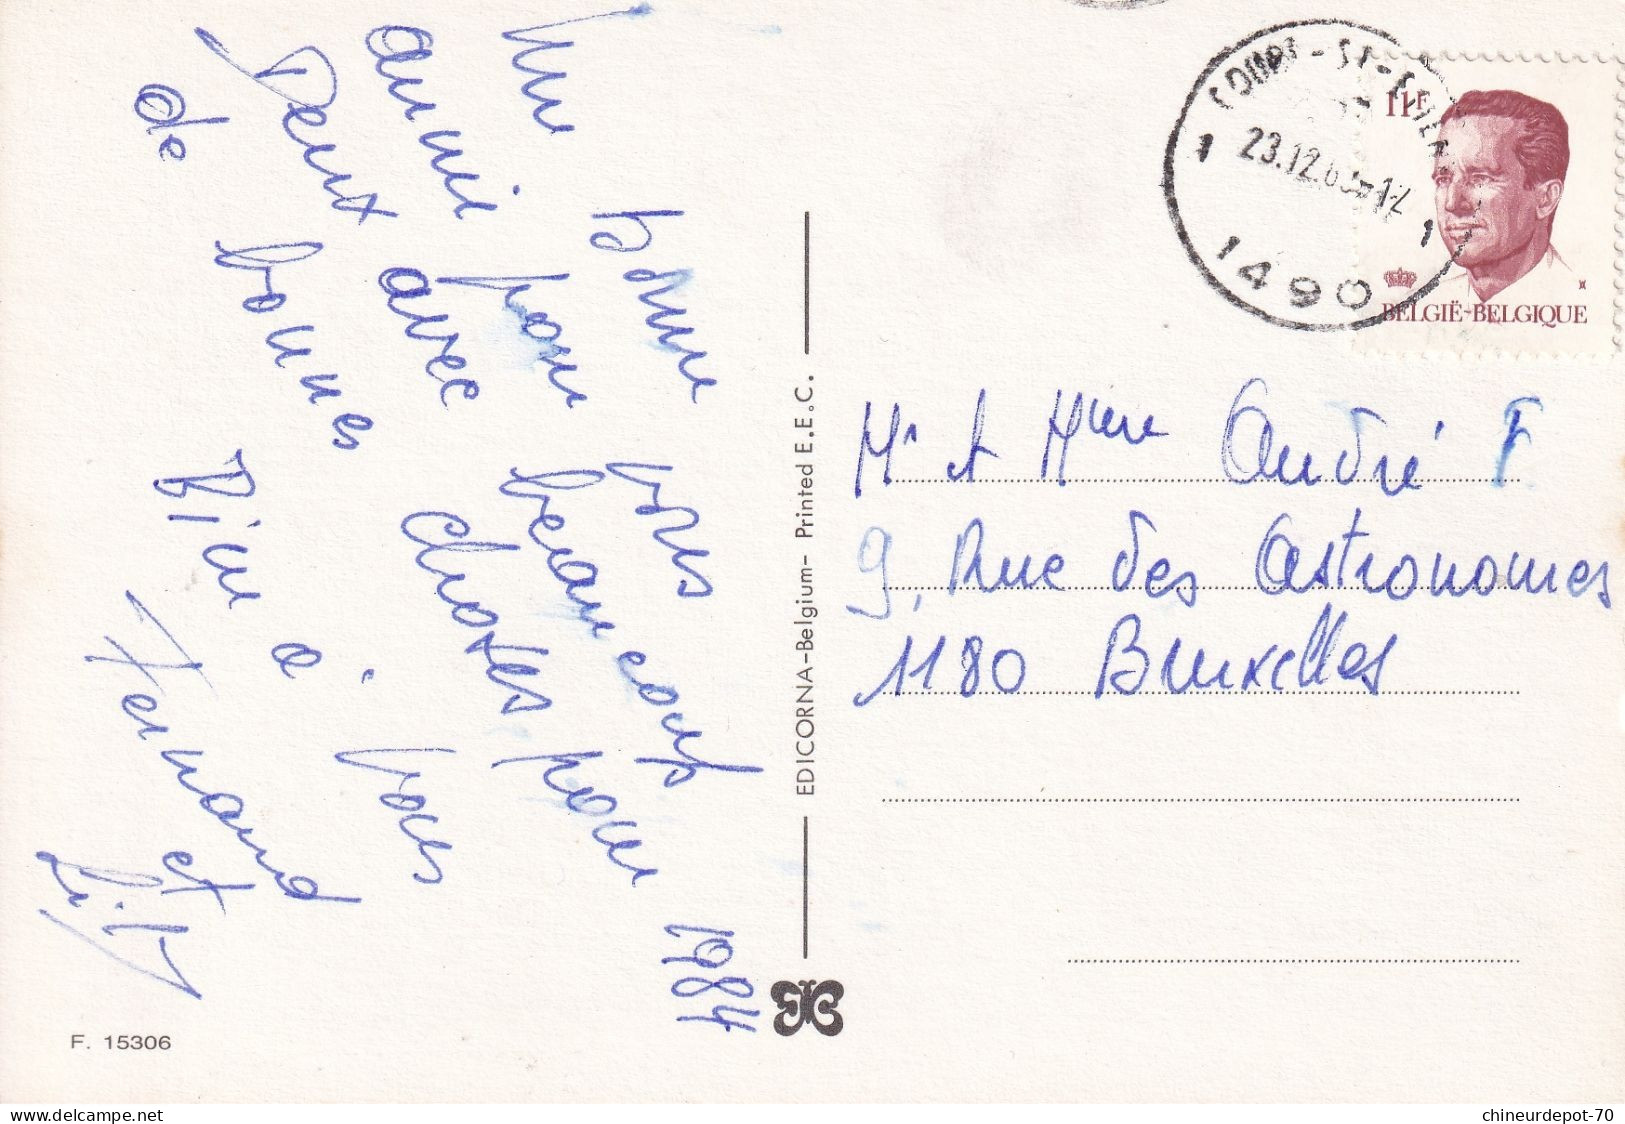 Une bonne
année pour vous
Deux avec beaucoup
de bonnes choses pour 1984
Bien à vous
Fernand
et
Lily
F. 15306
EDICORNA-Belgium- Printed E.E.C.
COURT-ST-ETIEN
23.12.83-12
1 1
1490
11F
BELGIË-BELGIQUE
Mr et Mme André F
9, Rue des Astronomes
1180 Bruxelles
delcampe.net
chineurdepot-70